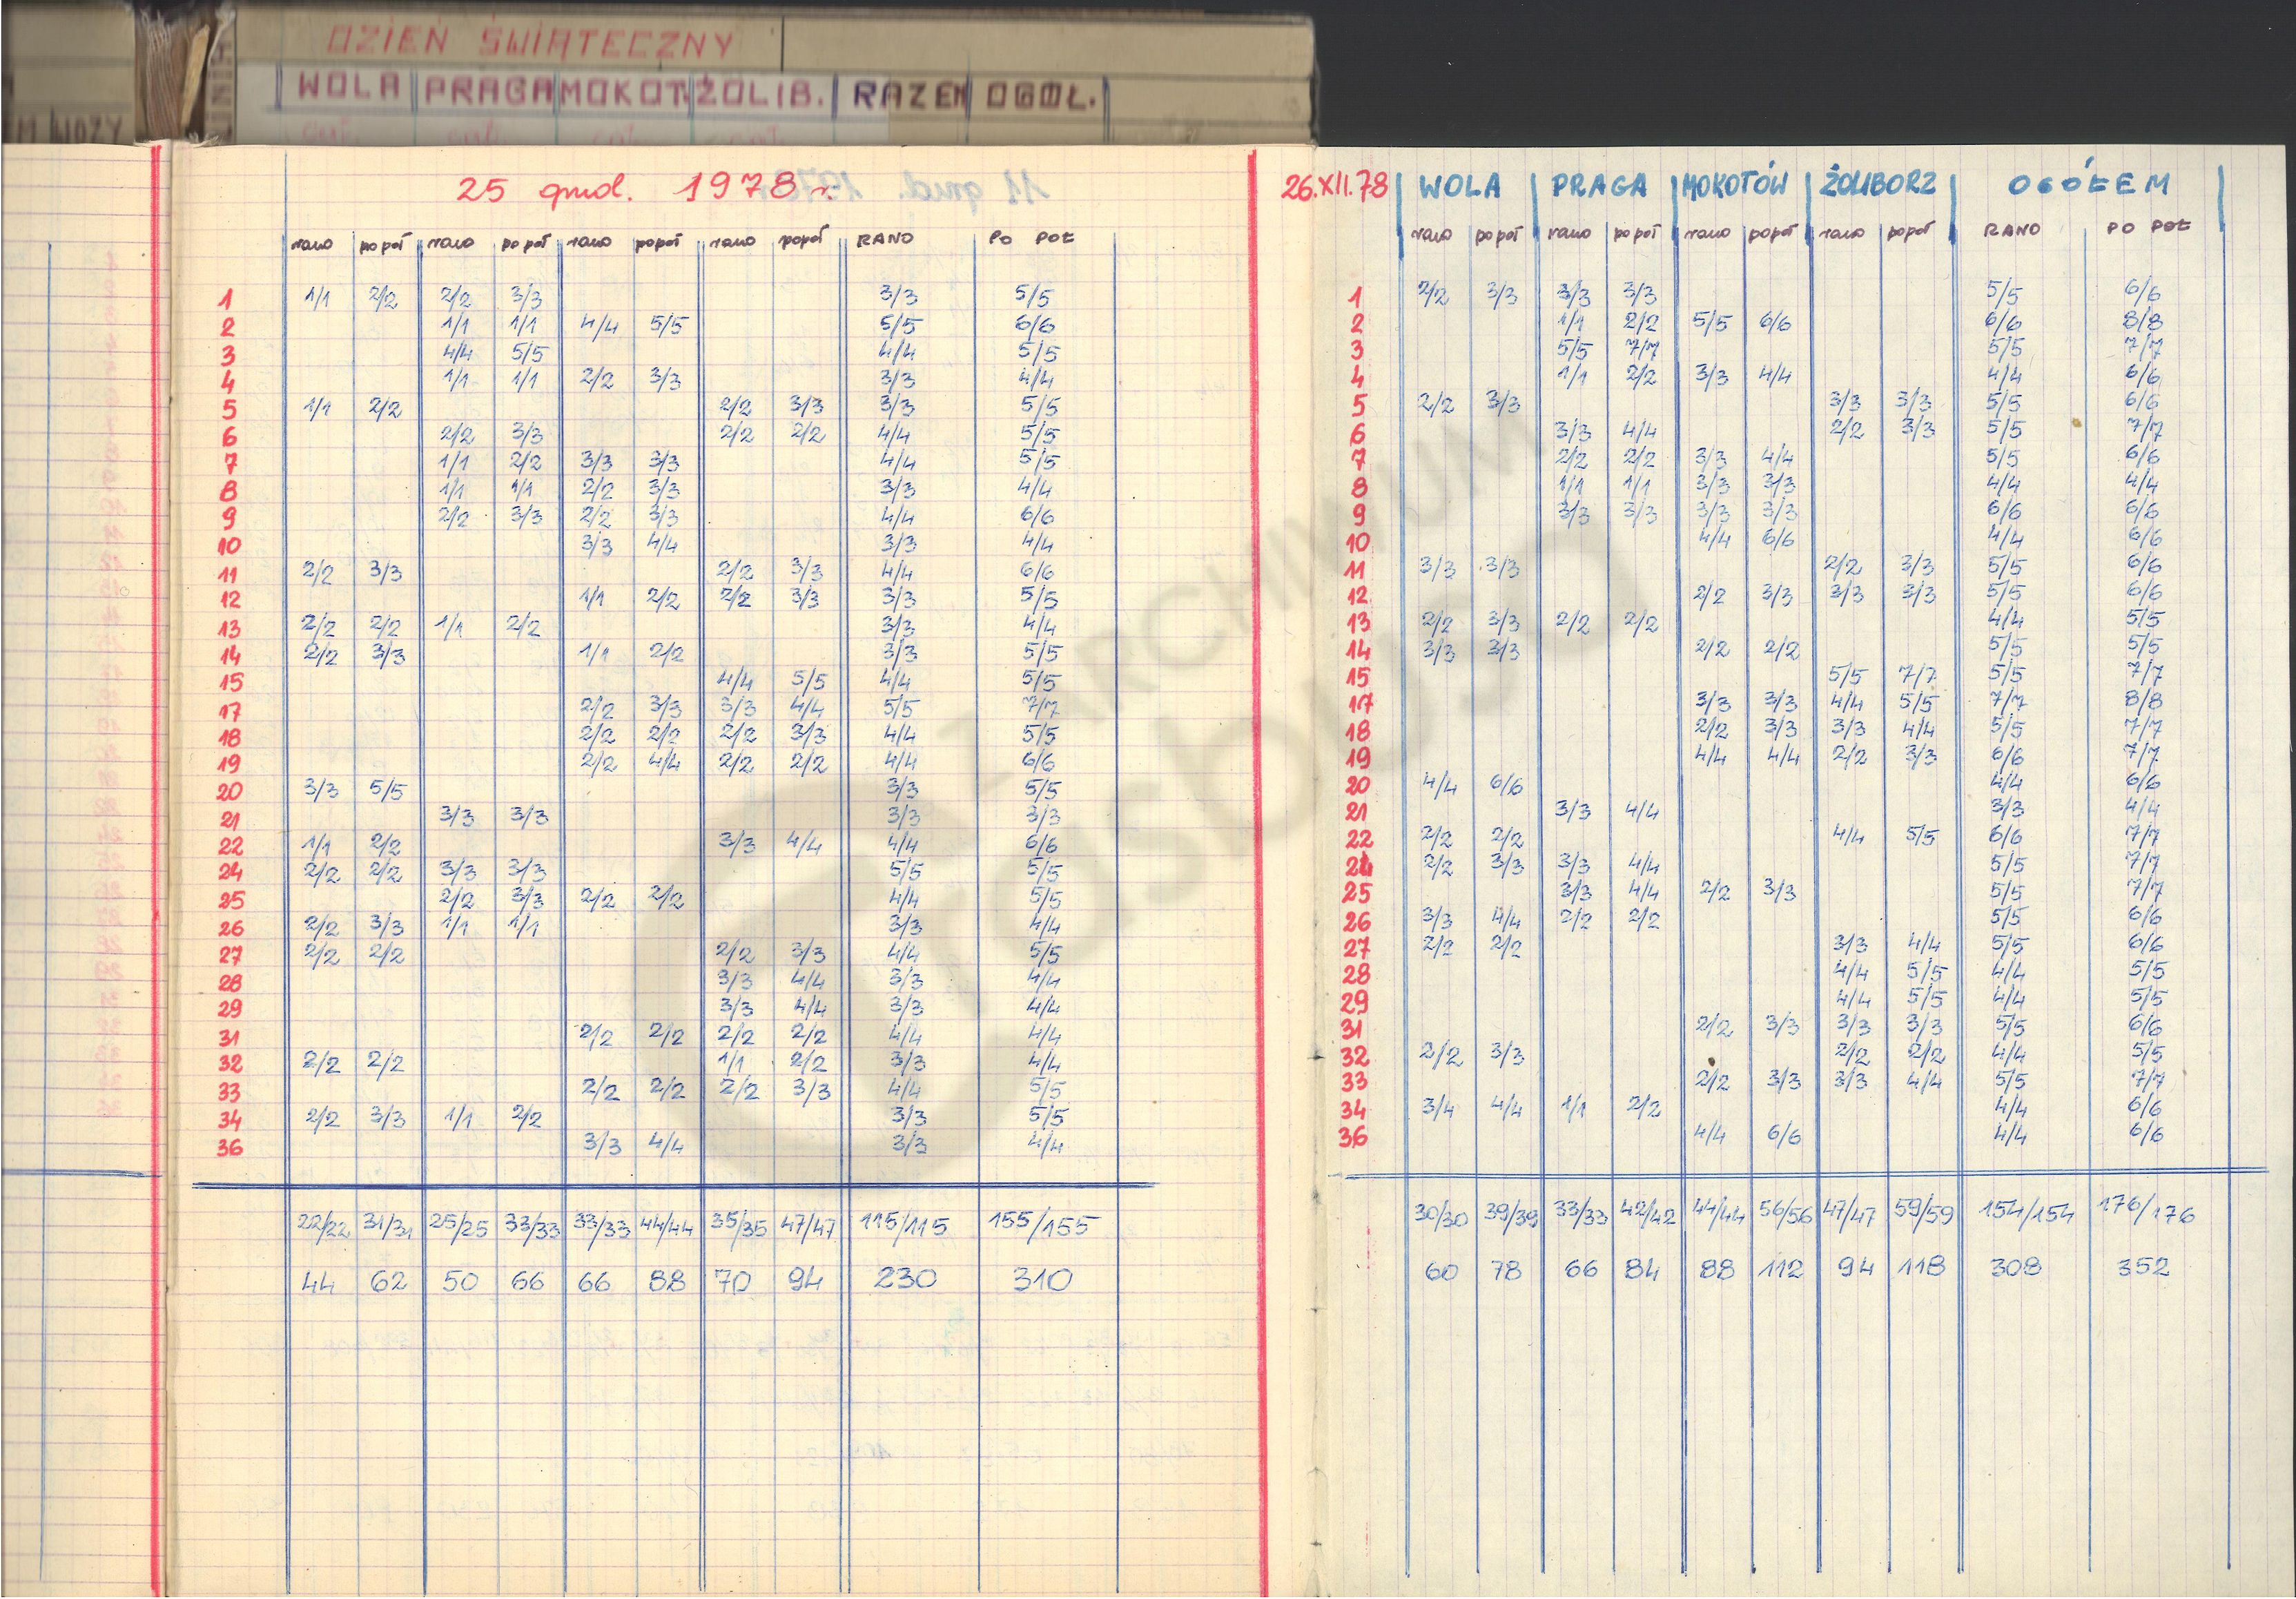 DZIEŃ ŚWIĄTECZNY
WOLA PRAGA MOKOT. ŻOLIB. RAZEM OGÓŁ.
WOZY
25 grud. 1978 r.
rano popoł rano popoł rano popoł rano popoł RANO PO POŁ
1 1/1 2/2 2/2 3/3 3/3 5/5
2 1/1 1/1 4/4 5/5 5/5 6/6
3 4/4 5/5 4/4 5/5
4 1/1 1/1 2/2 3/3 3/3 4/4
5 1/1 2/2 2/2 3/3 3/3 5/5
6 2/2 3/3 2/2 2/2 4/4 5/5
7 1/1 2/2 3/3 3/3 4/4 5/5
8 1/1 1/1 2/2 3/3 3/3 4/4
9 2/2 3/3 2/2 3/3 4/4 6/6
10 3/3 4/4 3/3 4/4
11 2/2 3/3 2/2 3/3 4/4 6/6
12 1/1 2/2 2/2 3/3 3/3 5/5
13 2/2 2/2 1/1 2/2 3/3 4/4
14 2/2 3/3 1/1 2/2 3/3 5/5
15 4/4 5/5 4/4 5/5
17 2/2 3/3 3/3 4/4 5/5 7/7
18 2/2 2/2 2/2 3/3 4/4 5/5
19 2/2 4/4 2/2 2/2 4/4 6/6
20 3/3 5/5 3/3 5/5
21 3/3 3/3 3/3 3/3
22 1/1 2/2 3/3 4/4 4/4 6/6
24 2/2 2/2 3/3 3/3 5/5 5/5
25 2/2 3/3 2/2 2/2 4/4 5/5
26 2/2 3/3 1/1 1/1 3/3 4/4
27 2/2 2/2 2/2 3/3 4/4 5/5
28 3/3 4/4 3/3 4/4
29 3/3 4/4 3/3 4/4
31 2/2 2/2 2/2 2/2 4/4 4/4
32 2/2 2/2 1/1 2/2 3/3 4/4
33 2/2 2/2 2/2 3/3 4/4 5/5
34 2/2 3/3 1/1 2/2 3/3 5/5
36 3/3 4/4 3/3 4/4
22/22 31/31 25/25 33/33 33/33 44/44 35/35 47/47 115/115 155/155
44 62 50 66 66 88 70 94 230 310
26.XII.78 WOLA PRAGA MOKOTÓW ŻOLIBORZ OGÓŁEM
rano popoł rano popoł rano popoł rano popoł RANO PO POŁ
1 2/2 3/3 3/3 3/3 5/5 6/6
2 1/1 2/2 5/5 6/6 6/6 8/8
3 5/5 7/7 5/5 7/7
4 1/1 2/2 3/3 4/4 4/4 6/6
5 2/2 3/3 3/3 3/3 5/5 6/6
6 3/3 4/4 2/2 3/3 5/5 7/7
7 2/2 2/2 3/3 4/4 5/5 6/6
8 1/1 1/1 3/3 3/3 4/4 4/4
9 3/3 3/3 3/3 3/3 6/6 6/6
10 4/4 6/6 4/4 6/6
11 3/3 3/3 2/2 3/3 5/5 6/6
12 2/2 3/3 3/3 3/3 5/5 6/6
13 2/2 3/3 2/2 2/2 4/4 5/5
14 3/3 3/3 2/2 2/2 5/5 5/5
15 5/5 7/7 5/5 7/7
17 3/3 3/3 4/4 5/5 7/7 8/8
18 2/2 3/3 3/3 4/4 5/5 7/7
19 4/4 4/4 2/2 3/3 6/6 7/7
20 4/4 6/6 4/4 6/6
21 3/3 4/4 3/3 4/4
22 2/2 2/2 4/4 5/5 6/6 7/7
24 2/2 3/3 3/3 4/4 5/5 7/7
25 3/3 4/4 2/2 3/3 5/5 7/7
26 3/3 4/4 2/2 2/2 5/5 6/6
27 2/2 2/2 3/3 4/4 5/5 6/6
28 4/4 5/5 4/4 5/5
29 4/4 5/5 4/4 5/5
31 2/2 3/3 3/3 3/3 5/5 6/6
32 2/2 3/3 2/2 2/2 4/4 5/5
33 2/2 3/3 3/3 4/4 5/5 7/7
34 3/4 4/4 1/1 2/2 4/4 6/6
36 4/4 6/6 4/4 6/6
30/30 39/39 33/33 42/42 44/44 56/56 47/47 59/59 154/154 176/176
60 78 66 84 88 112 94 118 308 352